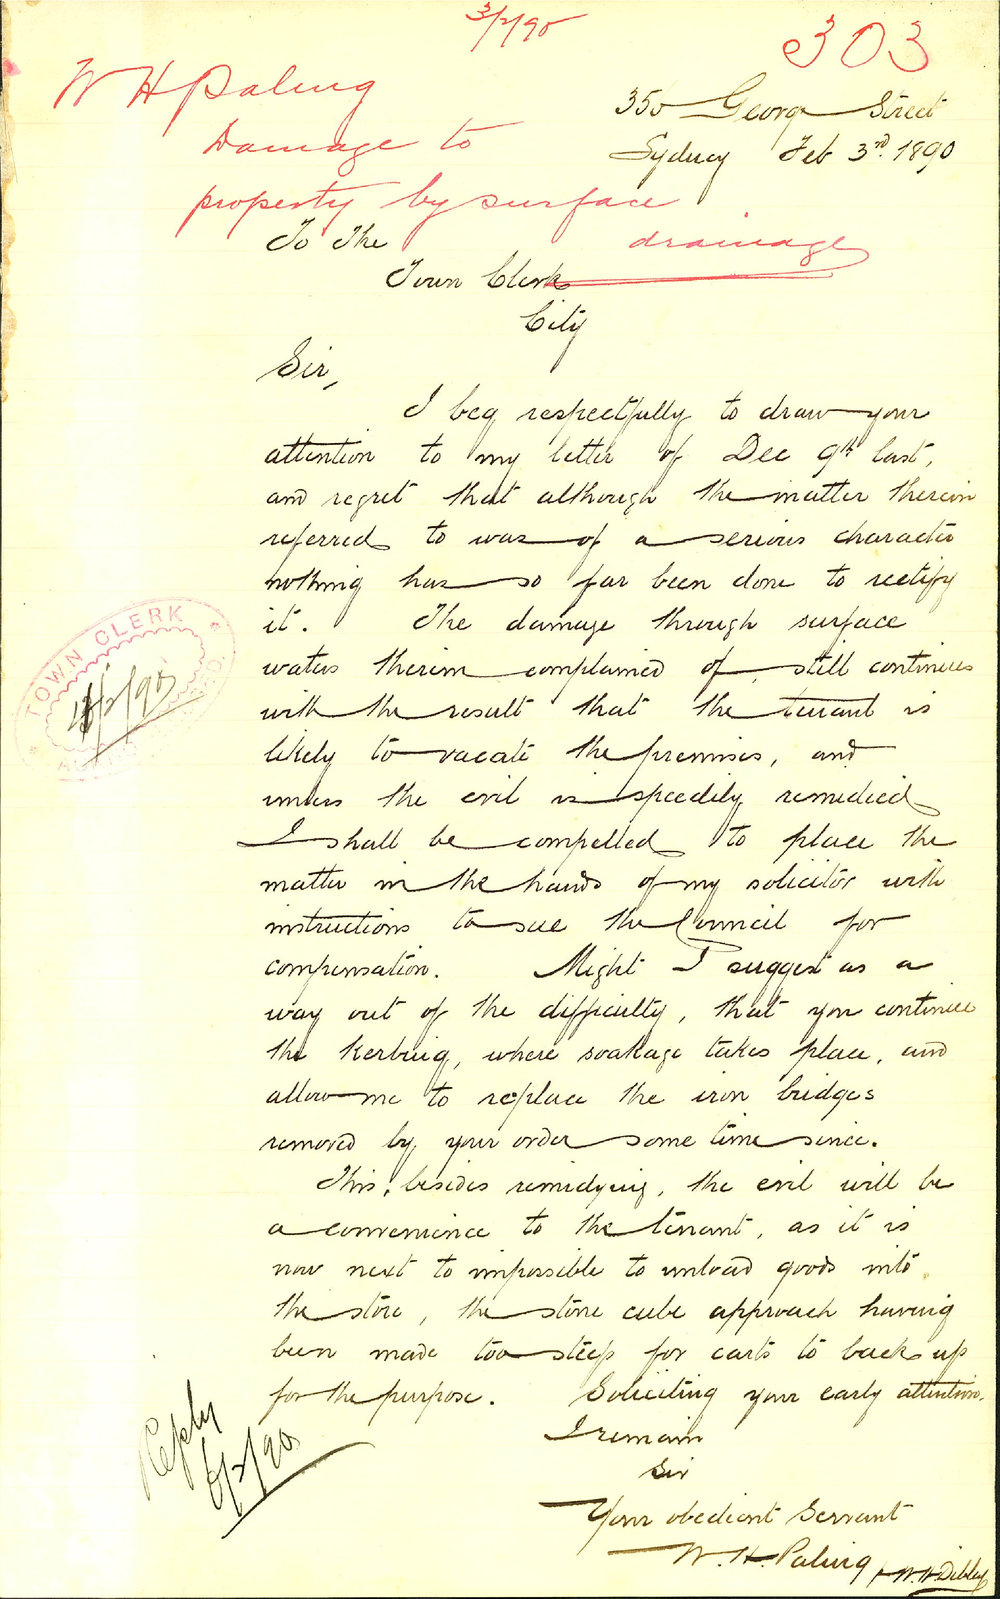 3/2/90
303
W H Paling
Damage to
property by surface
drainage
350 George Street
Sydney Feb 3rd 1890
To The
Town Clerk
City
Sir,
I beg respectfully to draw your
attention to my letter of Dec 9th last,
and regret that although the matter therein
referred to was of a serious character
nothing has so far been done to rectify
it. The damage through surface
waters therein complained of still continues
with the result that the tenant is
likely to vacate the premises, and
unless the evil is speedily remedied
I shall be compelled to place the
matter in the hands of my solicitor with
instructions to sue the Council for
compensation. Might I suggest as a
way out of the difficulty, that you continue
the Kerbing, where soakage takes place, and
allow me to replace the iron bridges
removed by your order some time since.
This, besides remidying, the evil will be
a convenience to the tenant, as it is
now next to impossible to unload goods into
the store, the stone cube approach having
been made too steep for carts to back up
for the purpose. Soliciting your early attention.
I remain
Sir
Your obedient Servant
W. H. Paling
W. H Dibley
TOWN CLERK
/2/90
Reply
6/2/90